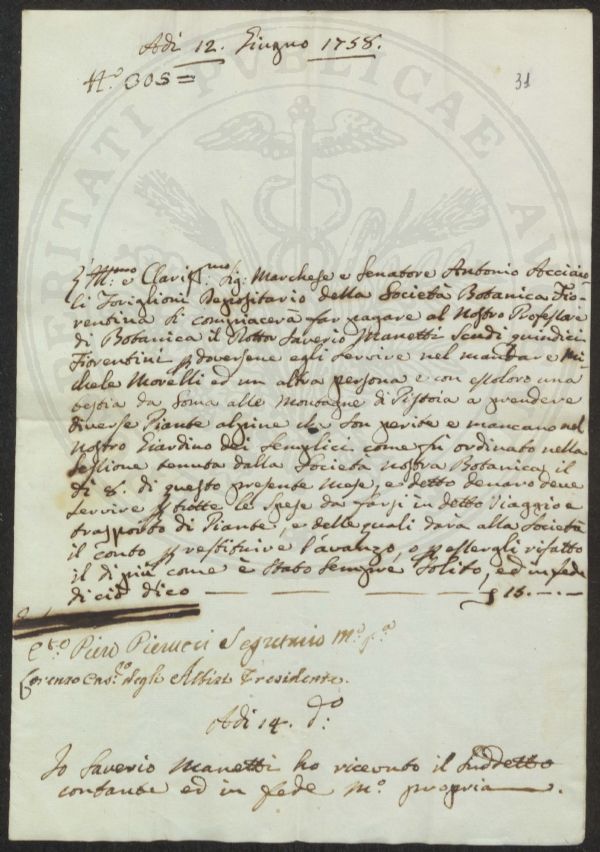 Adì 12. Giugno 1758.
N.o 305=
31
L'Ill.mo e Clariss.mo Sig. Marchese e Senatore Antonio Acciaio-
li Toriglioni Depositario della Società Botanica Fio-
rentina si compiacerà far pagare al Nostro Professore
di Botanica il Dottor Saverio Manetti Scudi quindici
Fiorentini p doversene egli servire nel mandare Mi-
chele Morelli ed un altra persona e con essoloro una
bestia da Soma alle Montagne di Pistoia a prendere
diverse Piante alpine che son perite e mancano nel
Nostro Giardino dei Semplici come fù ordinato nella
Sessione tenuta dalla Società Nostra Botanica il
dì 8. di questo presente Mese, e detto denaro deve
Servire p tutte le Spese da farsi in detto Viaggio e
trasporto di Piante, e delle quali darà alla Società
il conto p restituire l'avanzo, o p essergli rifatto
il di più come è Stato Sempre Solito, ed in fede
di ciò dico — — — — — 15. — . —
Piero Pierucci Segretario M.o p.a
Lorenzo degli Albizi Presidente.
Adì 14. d.o
Io Saverio Manetti ho ricevuto il Suddetto
contante ed in fede M.o propria.
VERITATI PVBLICAE